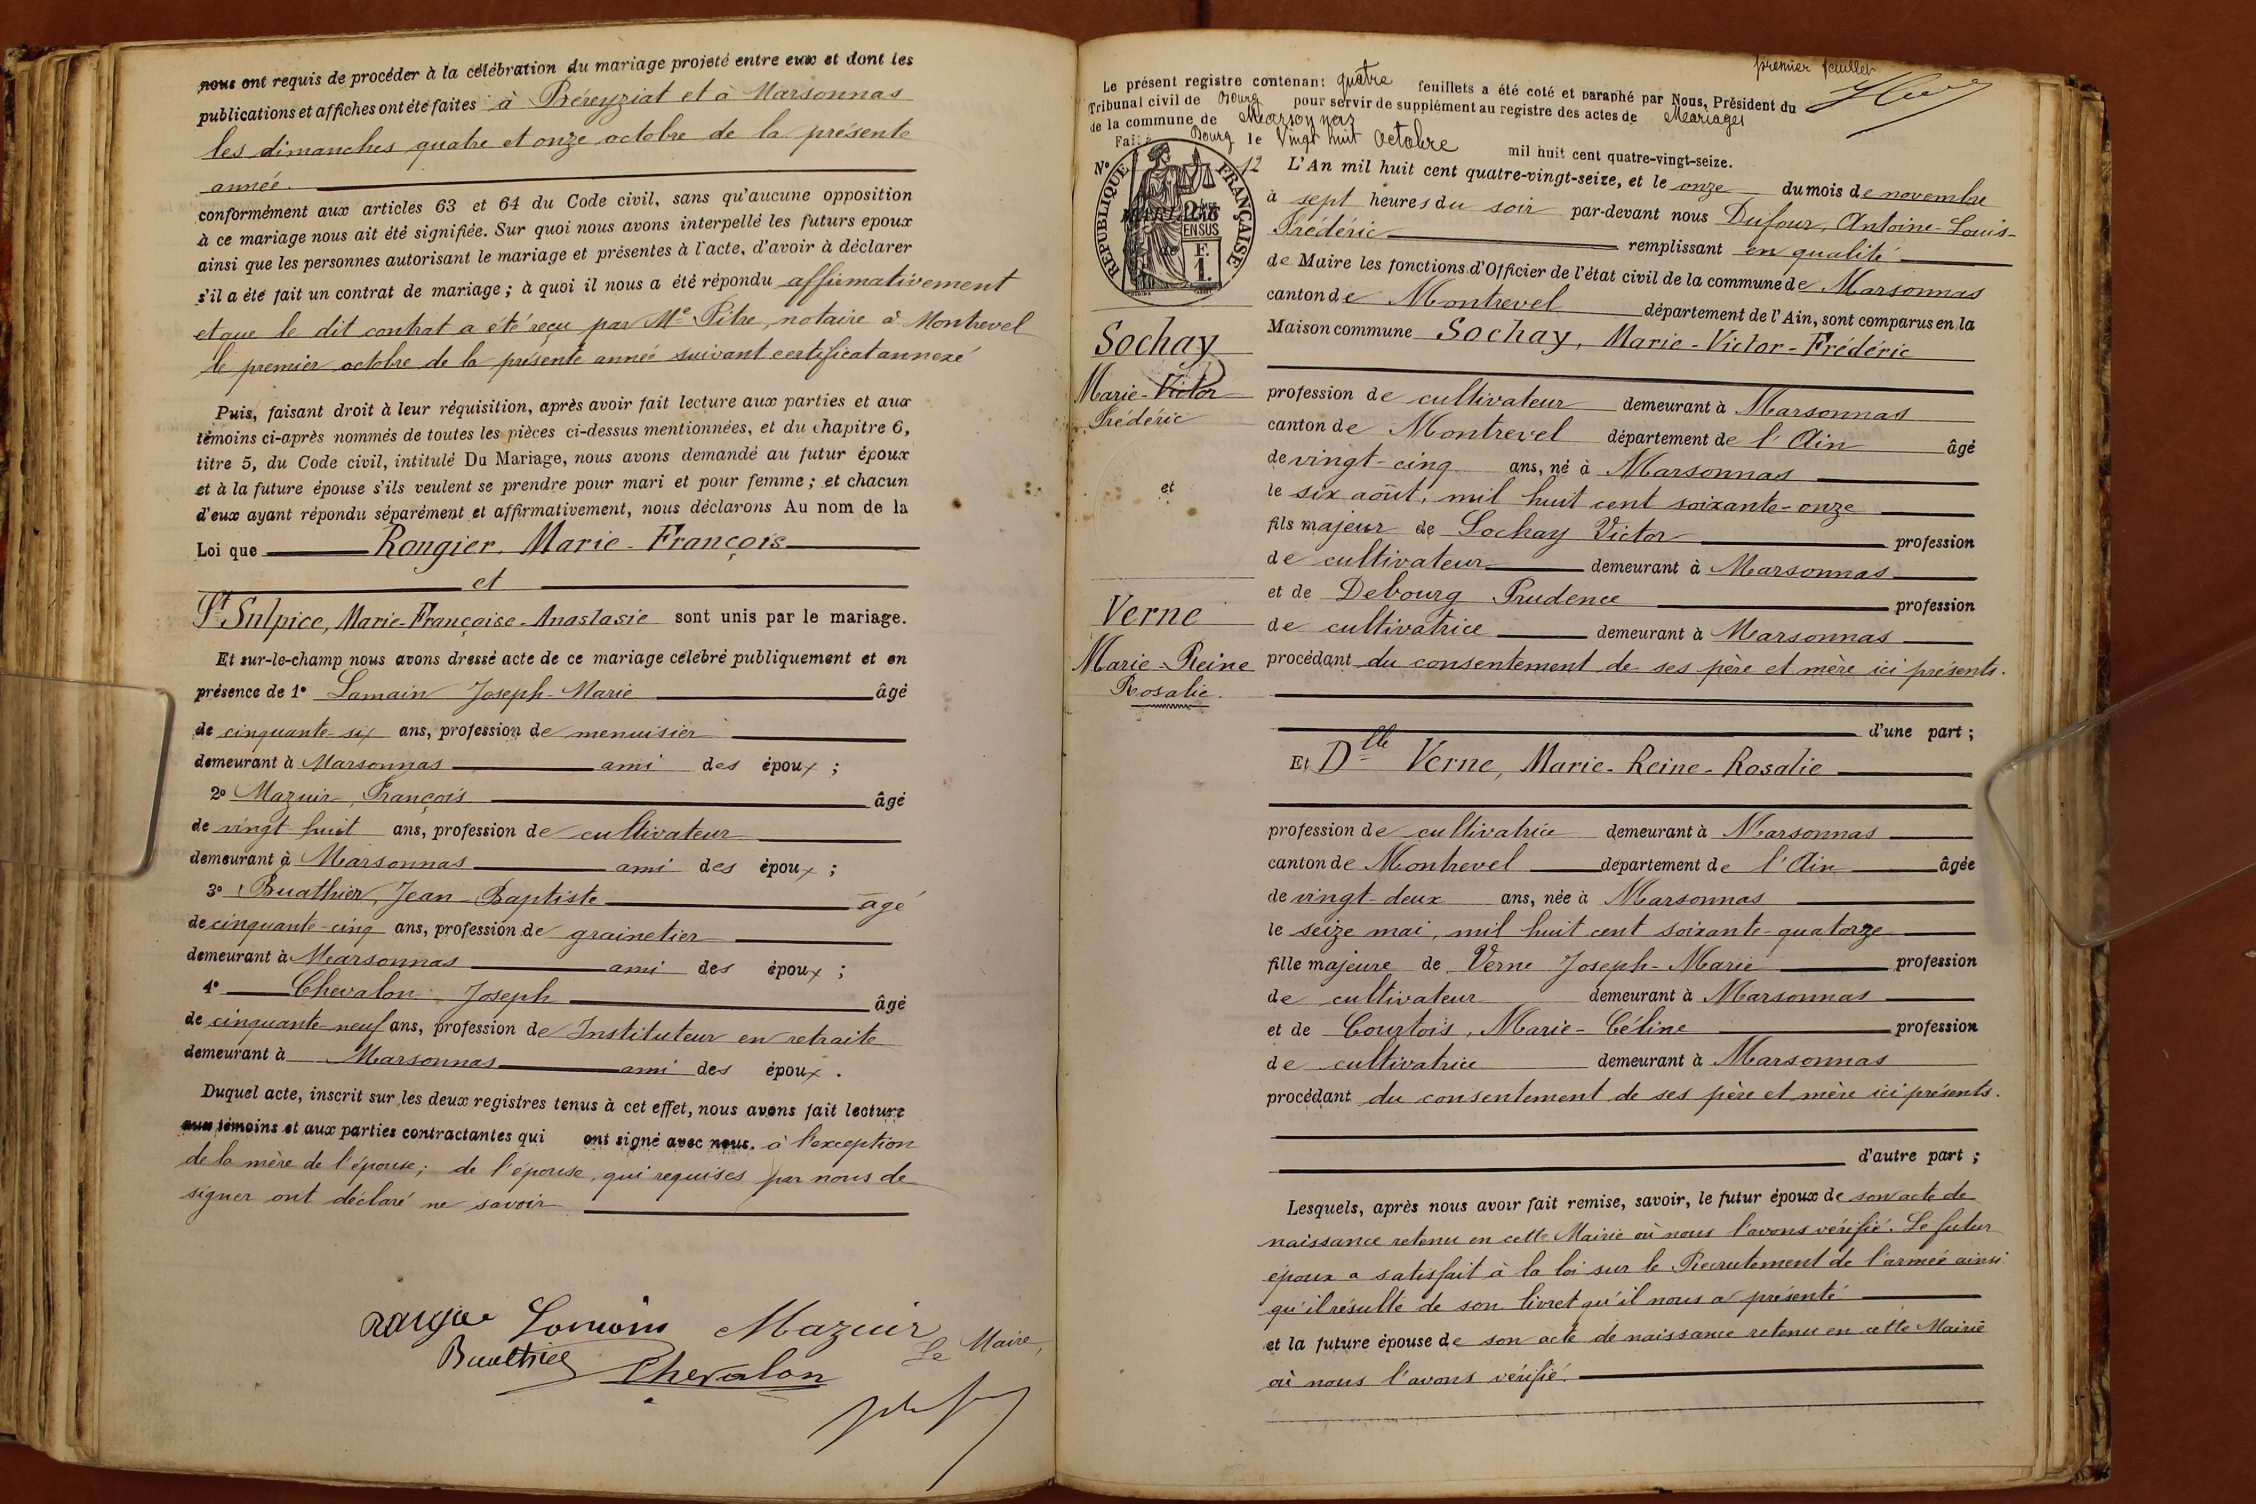 nous ont requis de procéder à la célébration du mariage projeté entre eux et dont les
publications et affiches ont été faites à Béreyziat et à Marsonnas
les dimanches quatre et onze octobre de la présente
année.
conformément aux articles 63 et 64 du Code civil, sans qu'aucune opposition
à ce mariage nous ait été signifiée. Sur quoi nous avons interpellé les futurs epoux
ainsi que les personnes autorisant le mariage et présentes à l'acte, d'avoir à déclarer
s'il a été fait un contrat de mariage ; à quoi il nous a été répondu affirmativement
et que le dit contrat a été reçu par Me Pitre, notaire à Montrevel
le premier octobre de la présente année suivant certificat annexé
Puis, faisant droit à leur réquisition, après avoir fait lecture aux parties et aux
témoins ci-après nommés de toutes les pièces ci-dessus mentionnées, et du chapitre 6,
titre 5, du Code civil, intitulé Du Mariage, nous avons demandé au futur époux
et à la future épouse s'ils veulent se prendre pour mari et pour femme ; et chacun
d'eux ayant répondu séparément et affirmativement, nous déclarons Au nom de la
Loi que Rongier, Marie-François
et
St Sulpice, Marie-Françoise-Anastasie sont unis par le mariage.
Et sur-le-champ nous avons dressé acte de ce mariage célébré publiquement et en
présence de 1° Lamain Joseph-Marie âgé
de cinquante-six ans, profession de menuisier
demeurant à Marsonnas ami des époux ;
2° Mazuir, François âgé
de vingt huit ans, profession de cultivateur
demeurant à Marsonnas ami des époux ;
3° Buathier, Jean-Baptiste âgé
de cinquante-cinq ans, profession de grainetier
demeurant à Marsonnas ami des époux ;
4° Chevalon Joseph âgé
de cinquante-neuf ans, profession de Instituteur en retraite
demeurant à Marsonnas ami des époux.
Duquel acte, inscrit sur les deux registres tenus à cet effet, nous avons fait lecture
aux témoins et aux parties contractantes qui ont signé avec nous. à l'exception
de la mère de l'épouse; de l'épouse, qui requises par nous de
signer ont déclaré ne savoir
Mazuir
Buathier Chevalon Le Maire,
premier feuillet
Le présent registre contenant quatre feuillets a été coté et paraphé par Nous, Président du
Tribunal civil de Bourg pour servir de supplément au registre des actes de Mariages
de la commune de Marsonnas
Fait à Bourg le Vingt huit Octobre mil huit cent quatre-vingt-seize.
N° 12
RÉPUBLIQUE FRANÇAISE
MARIAGE
2/10es
EN SUS
F.
1.
L'An mil huit cent quatre-vingt-seize, et le onze du mois de novembre
à sept heures du soir par-devant nous Dufour, Antoine-Louis-
Frédéric remplissant en qualité
de Maire les fonctions d'Officier de l'état civil de la commune de Marsonnas
canton de Montrevel département de l'Ain, sont comparus en la
Maison commune Sochay, Marie-Victor-Frédéric
Sochay
Marie-Victor
Frédéric
et
Verne
Marie-Reine
Rosalie.
profession de cultivateur demeurant à Marsonnas
canton de Montrevel département de l'Ain âgé
de vingt-cinq ans, né à Marsonnas
le six août, mil huit cent soixante-onze
fils majeur de Sochay Victor profession
de cultivateur demeurant à Marsonnas
et de Debourg Prudence profession
de cultivatrice demeurant à Marsonnas
procédant du consentement de ses père et mère ici présents.
d'une part ;
Et Dlle Verne, Marie-Reine-Rosalie
profession de cultivatrice demeurant à Marsonnas
canton de Montrevel département de l'Ain âgée
de vingt-deux ans, née à Marsonnas
le seize mai, mil huit cent soixante-quatorze
fille majeure de Verne Joseph-Marie profession
de cultivateur demeurant à Marsonnas
et de Courtois, Marie-Céline profession
de cultivatrice demeurant à Marsonnas
procédant du consentement de ses père et mère ici présents.
d'autre part ;
Lesquels, après nous avoir fait remise, savoir, le futur époux de son acte de
naissance retenu en cette Mairie où nous l'avons vérifié. Le futur
époux a satisfait à la loi sur le Recrutement de l'armée ainsi
qu'il résulte de son livret qu'il nous a présenté
et la future épouse de son acte de naissance retenu en cette Mairie
où nous l'avons vérifié.